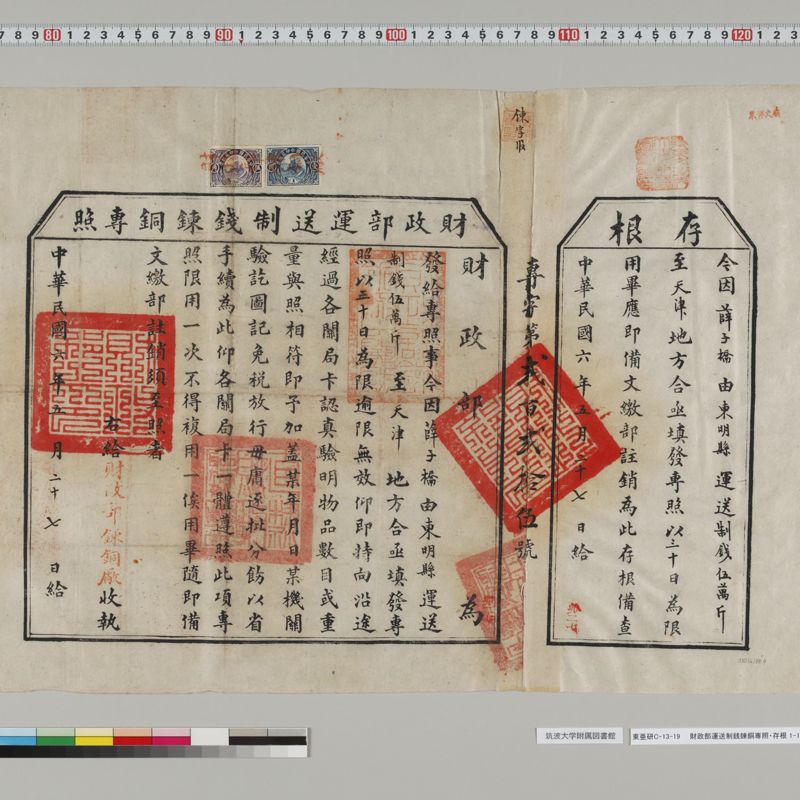 存根
今因薛子橋由東明縣運送制錢伍萬斤
至天津地方合亟填發專照以三十日為限
用畢應即備文繳部註銷為此存根備查
中華民國六年五月二十七日給
專字第貳百貳拾伍號
財政部運送制錢鍊銅專照
財政部為
發給專照事今因薛子橋由東明縣運送
制錢伍萬斤至天津地方合亟填發專
照以三十日為限逾限無效仰即持向沿途
經過各關局卡認真驗明物品數目或重
量與照相符即予加蓋某年月日某機關
驗訖圖記免稅放行毋庸逐批分飭以省
手續為此仰各關局卡一體遵照此項專
照限用一次不得複用一俟用畢隨即備
文繳部註銷須至照者
右給財政部鍊銅廠收執
中華民國六年五月二十七日給
筑波大学附属図書館
東亜研C-13-19 財政部運送制銭錬銅専照・存根
80 90 100 110 120